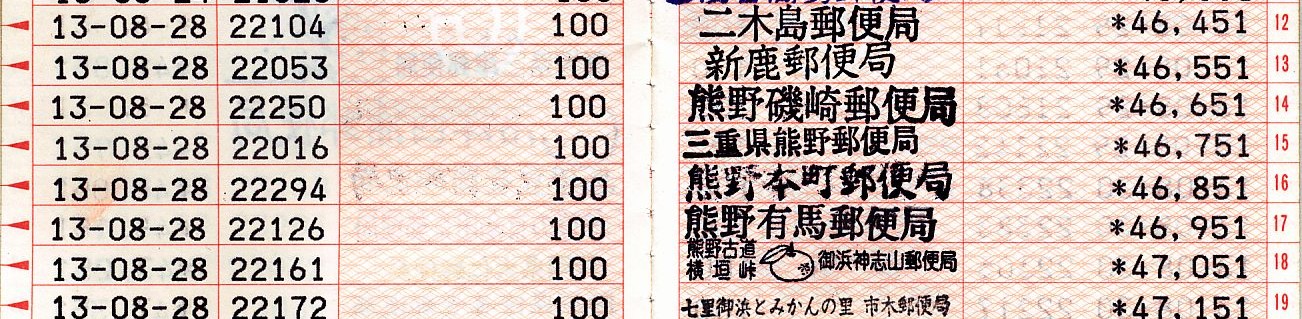 13-08-28 22104 100 二木島郵便局 *46,451 12
13-08-28 22053 100 新鹿郵便局 *46,551 13
13-08-28 22250 100 熊野磯崎郵便局 *46,651 14
13-08-28 22016 100 三重県熊野郵便局 *46,751 15
13-08-28 22294 100 熊野本町郵便局 *46,851 16
13-08-28 22126 100 熊野有馬郵便局 *46,951 17
13-08-28 22161 100 熊野古道 横垣峠 御浜神志山郵便局 *47,051 18
13-08-28 22172 100 七里御浜とみかんの里 市木郵便局 *47,151 19